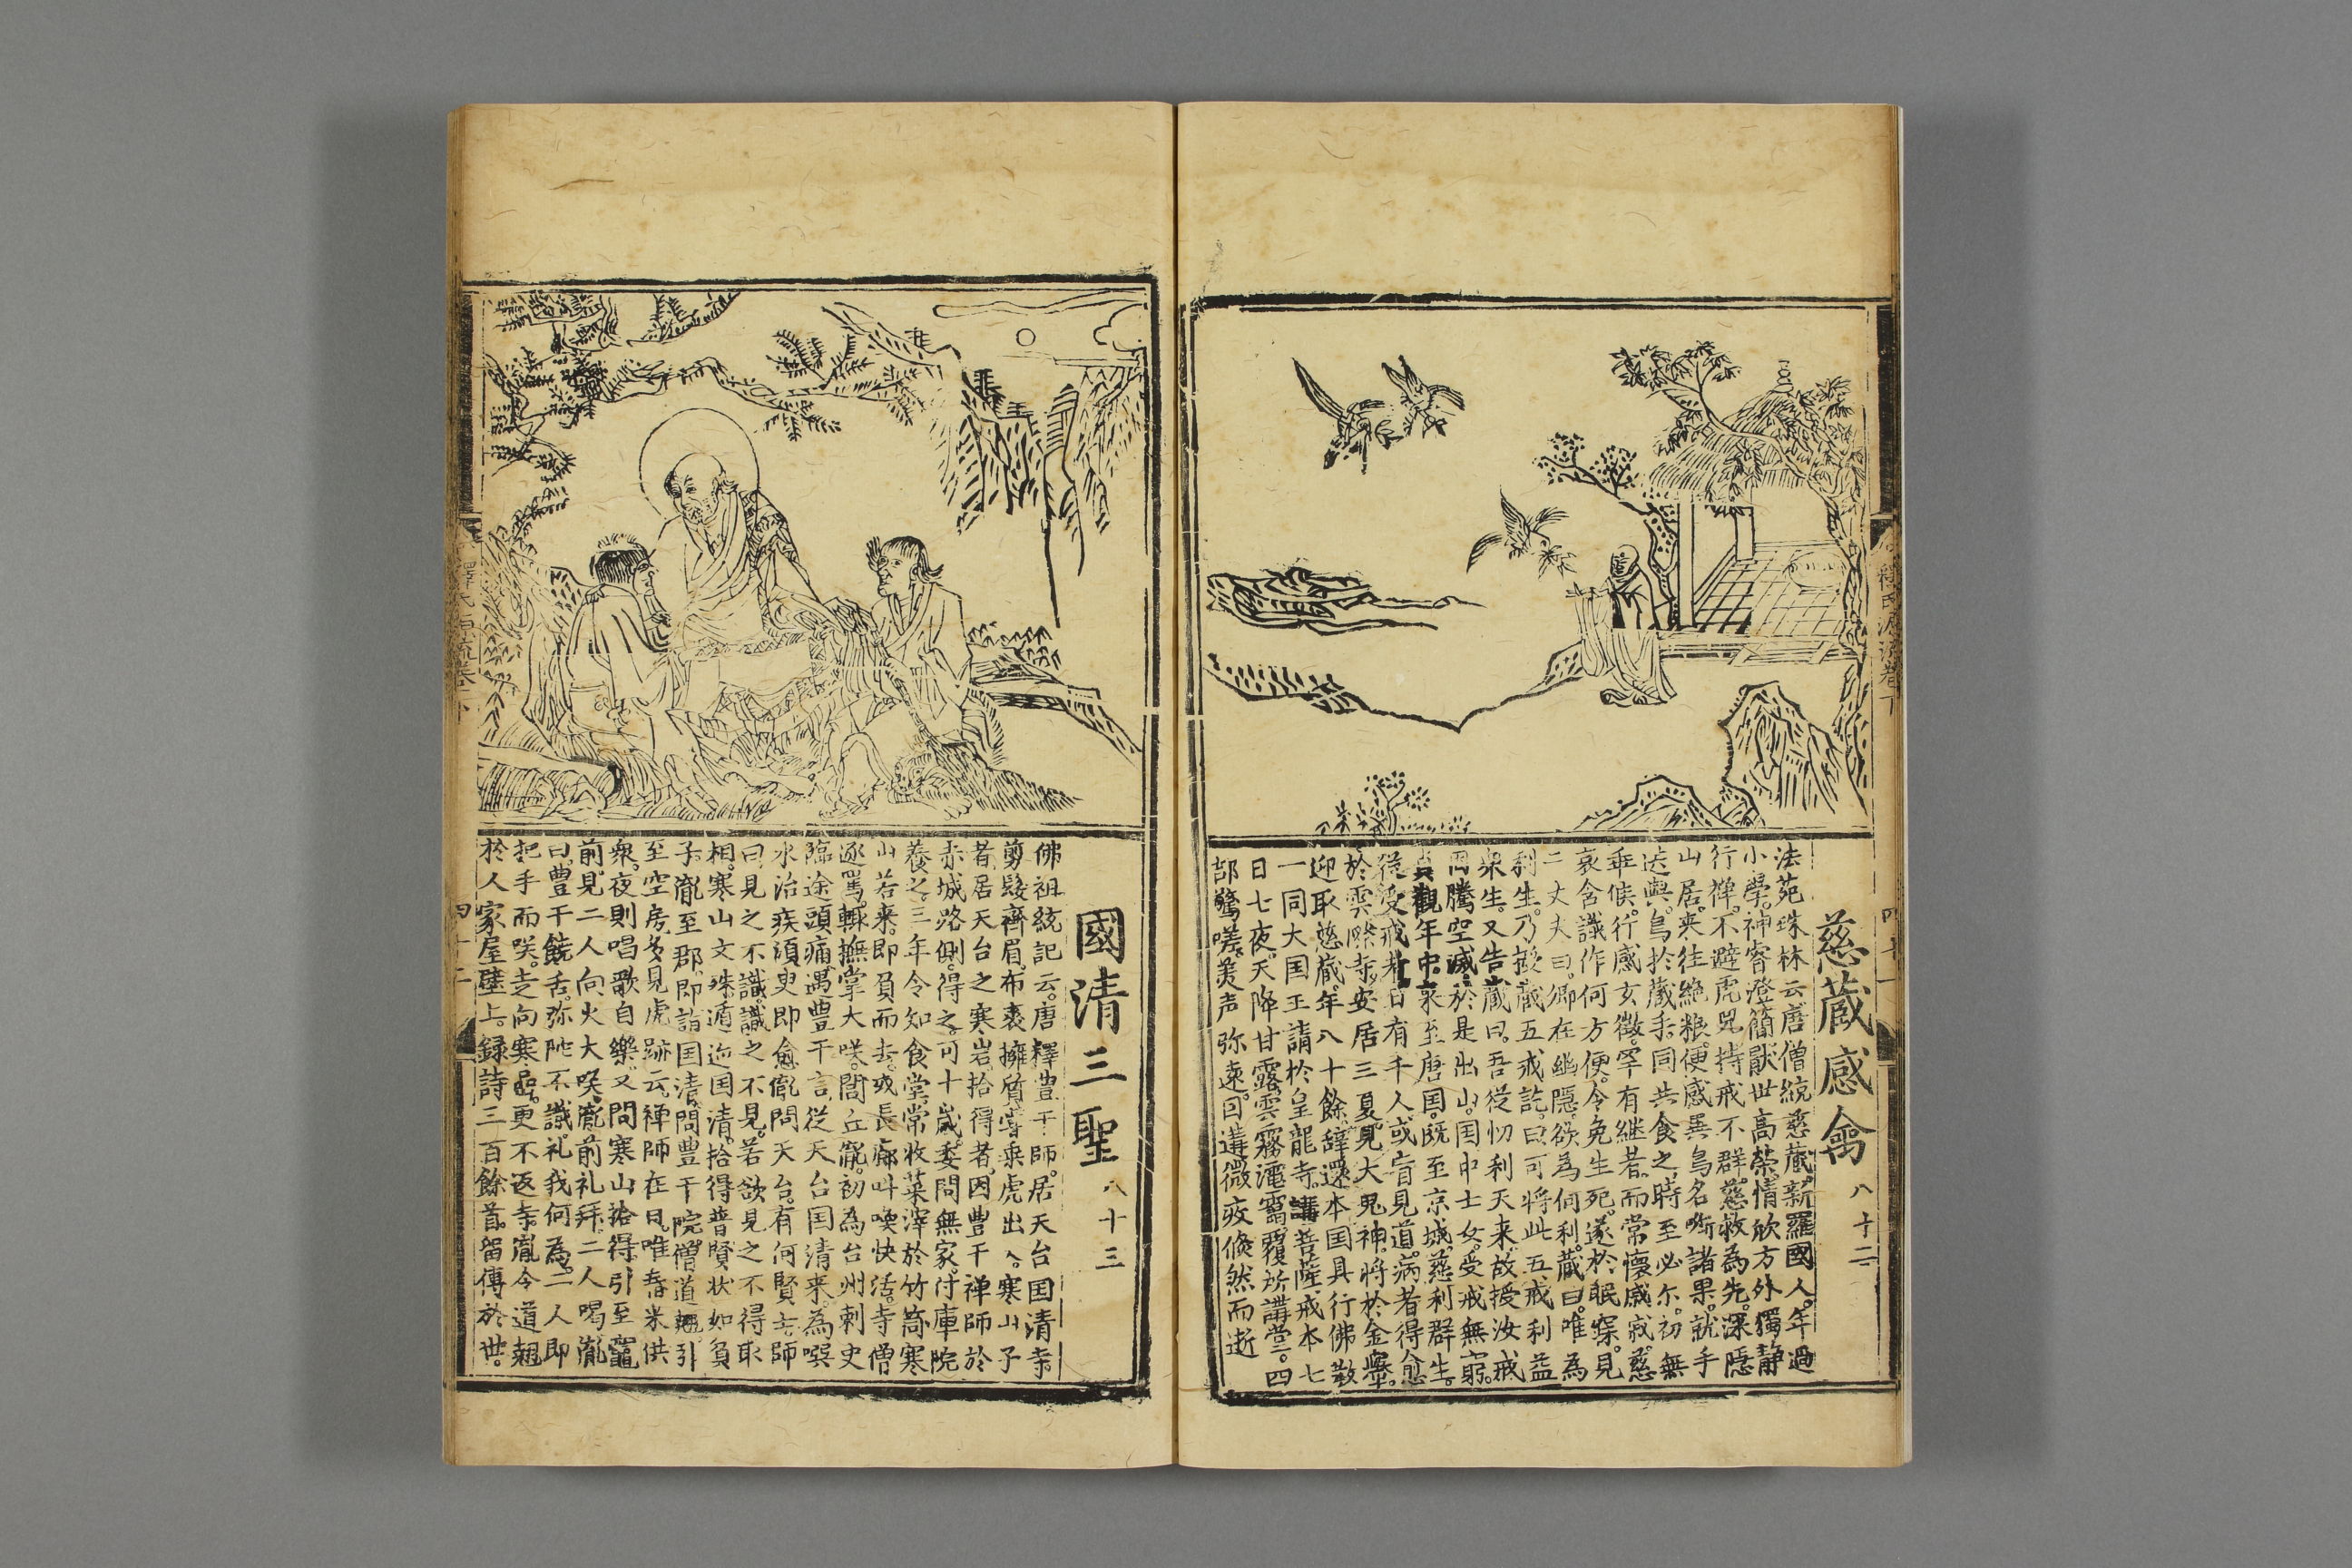 慈藏感禽 八十二
法苑珠林云唐僧統慈藏新羅國人年過
小學神睿澄簡厭世高榮情欣方外獨靜
行禪不避虎兕持戒不群慈救為先深隱
山居来往絶粮便感異鳥各啣諸果就手
送與鳥於藏手同共食之時至必尒初無
乖候行感玄徵罕有継者而常懷慼寂慈
哀含識作何方便令免生死遂於眠寐見
二丈夫曰卿在幽隱欲為何利藏曰唯為
利生乃授藏五戒訖曰可将此五戒利益
衆生又告藏曰吾從忉利天来故授汝戒
因騰空滅於是出山国中士女受戒無窮
貞觀年中来至唐国既至京城慈利群生
從受戒者日有千人或盲見道病者得愈
於雲際寺安居三夏見大鬼神将於金轝
迎取慈藏年八十餘辞還本国具行佛教
一同大国王請於皇龍寺講菩薩戒本七
日七夜天降甘露雲霧靉靄覆所講堂四
部驚嗟美声弥遠囙遘微疾倏然而逝
四十一
國清三聖 八十三
佛祖統記云唐釋豊干師居天台国清寺
剪髮齊眉布裘擁質甞乘虎出入寒山子
者居天台之寒岩拾得者因豊干禅師於
赤城路側得之可十歲委問無家付庫院
養之三年令知食堂常收菜滓於竹筒寒
山若来即負而去或長廊叫喚快活寺僧
逐罵輙撫掌大咲閭丘胤初為台州刺史
臨途頭痛遇豊干言從天台国清来為噀
水治疾須臾即愈胤問天台有何賢士師
曰見之不識識之不見若欲見之不得取
相寒山文殊遁迹国清拾得普賢状如貧
子胤至郡即詣国清問豊干院僧道翹引
至空房多見虎跡云禅師在日唯舂米供
衆夜則唱歌自樂又問寒山拾得引至竈
前見二人向火大咲胤前礼拜二人喝胤
曰豊干饒舌弥陀不識礼我何為二人即
把手而咲走向寒岩更不返寺胤令道翹
於人家屋壁上録詩三百餘首留傳於世
四十二